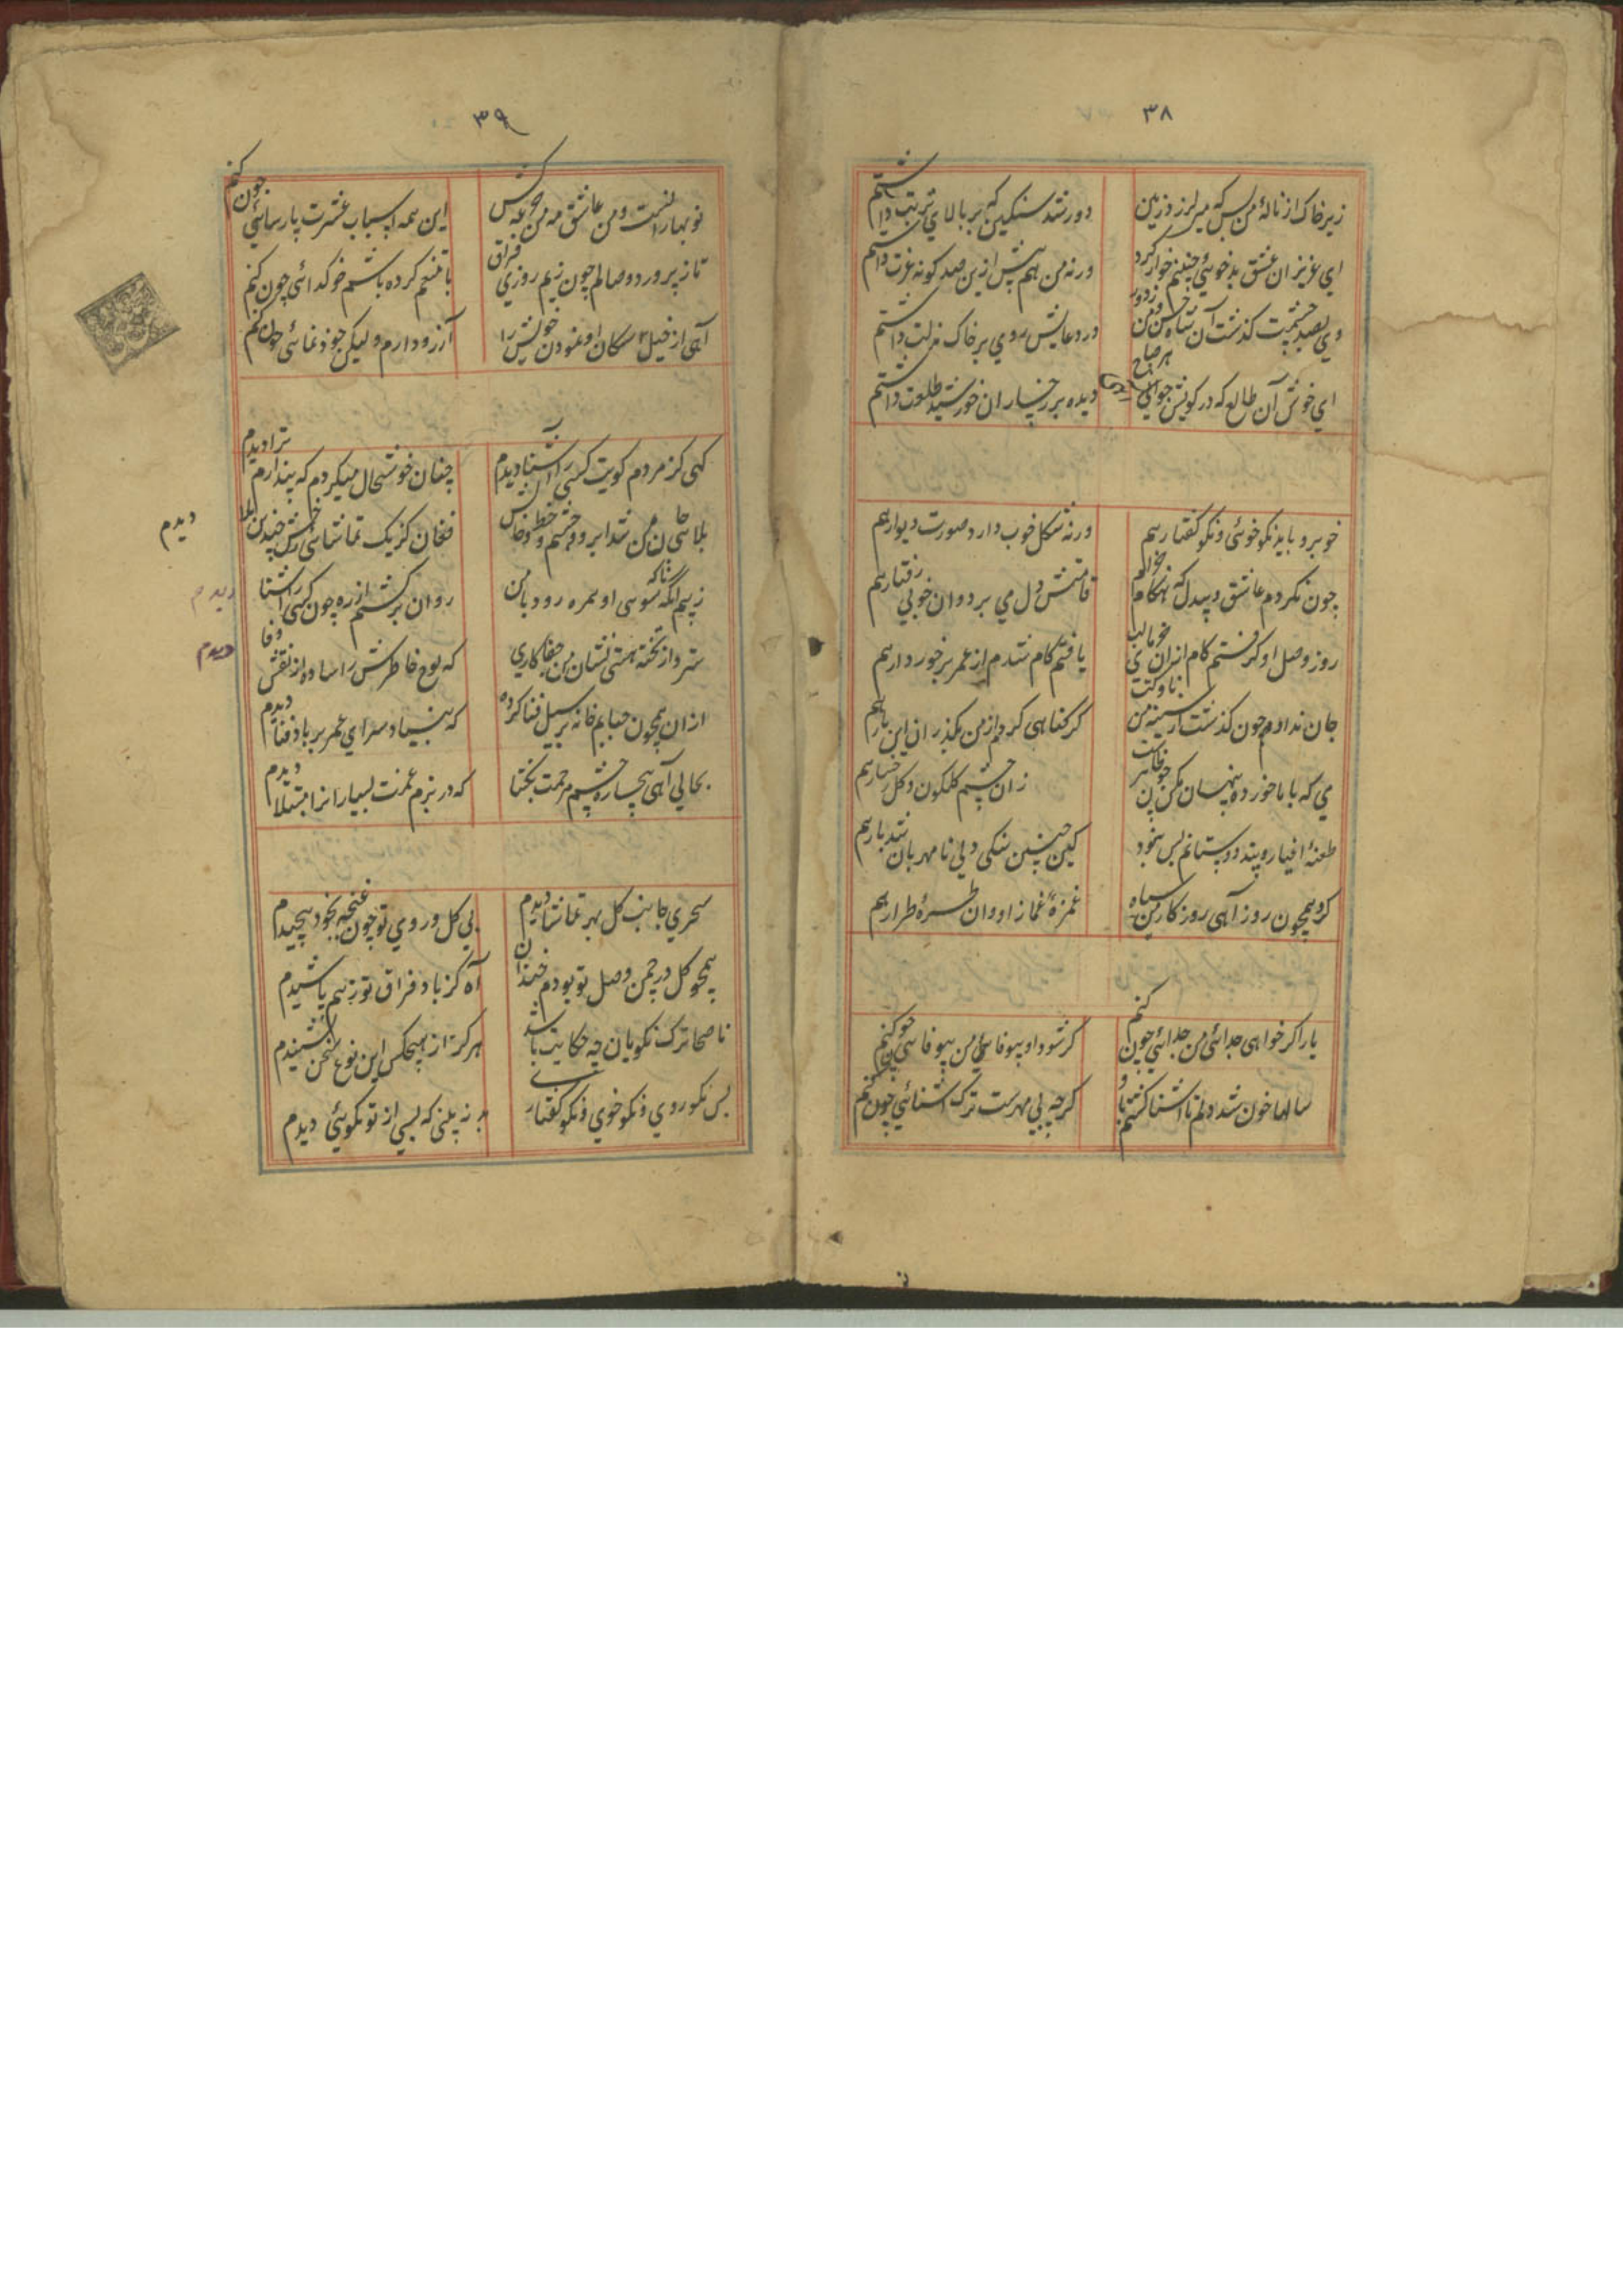 ۳۸
زیر خاک از نالهٔ من بس که میلرزد زمین
دور شد سنگین که بر بالای تربت داشتم
ای عزیزان عشق بدخوئی چنینم خوار کرد
ورنه من هم پیش ازین صد گونه عزت داشتم
وی بصد حشمت گذشت آن شاه حسن و من ز دور
در دعایش روی بر خاک مذلت داشتم
ای خوش آن طالع که در کویش چو آهی هر صباح
دیده بر رخسار ان خورشید طلعت داشتم
خوبرو باید نکو خوئی و نکو گفتار هم
ورنه شکل خوب دارد صورت دیوار هم
چون نکردم عاشق و بیدل که هنگام خرام
قامتش دل می برد وان خوبی رفتار هم
روز وصل او گرفتم کام ازان لب
یافتم کام شدم از عمر برخوردار هم
جان ندادم چون گذشت از سینه من ناوکت
گر گناهی کردم از من بگذران این بار هم
می که با ما خورده پنهان مکن
زان چشم گلگون و گل رخسار هم
طعنهٔ اغیار و پند دوستانم بس نبود
کین چنین سنگی دلی نا مهربان شد یار هم
کرد همچون روز آهی روزگار من سیاه
غمزهٔ غماز او وان طرهٔ طرار هم
یار اگر خواهی جدائی من جدائی چون کنم
گر شود او بیوفا من بیوفائی چون کنم
سالها خون شد دلم تا آشنا گشتم باو
گرچه بی مهرست ترک آشنائی چون کنم
۳۹
نوبهارانست و من عاشق مه من جرعه کش
این همه اسباب عشرت پارسائی چون کنم
ناز پرورد وصالم چون زیم روزی فراق
با تنعم کرده باشم خو گدائی چون کنم
آهی از خیل سگان او نمودن خویش را
آرزو دارم و لیکن خود نمائی چون کنم
گهی کز مردم کویت کسی را آشنا دیدم
چنان خوشحال میگردم که پندارم ترا دیدم
بلای جان من شد ابرو و چشم و خط و خالش
فغان کز یک تماشای رخش چندین بلا دیدم
ز بیم آنکه ناگه سوی او همره رود با من
روان برگشتم از ره چون کسی را آشنا دیدم
سترد از تخته هستی نشان من جفاکاری
که لوح خاطرش را ساده از نقش وفا دیدم
ازان همچون حبابم خانه بر سیل فنا کرده
که بنیاد سرای عمر بر باد فنا دیدم
بحال آهی بیچاره چشم مرحمت بگشا
که در بزم عزت بسیار انرا مبتلا دیدم
سحری جانب گل بهر تماشا دیدم
بی گل روی تو چون غنچه بخود پیچیدم
همچو گل در چمن وصل تو بودم خندان
آه کز باد فراق تو ز هم پاشیدم
ناصحا ترک نکویان چه حکایت باشد
هرگز از هیچکس این نوع سخن نشنیدم
بس نکو روی و نکو خوی و نکو گفتاری
که بسی از تو نکوئی دیدم
دیدم
دیدم
دیدم